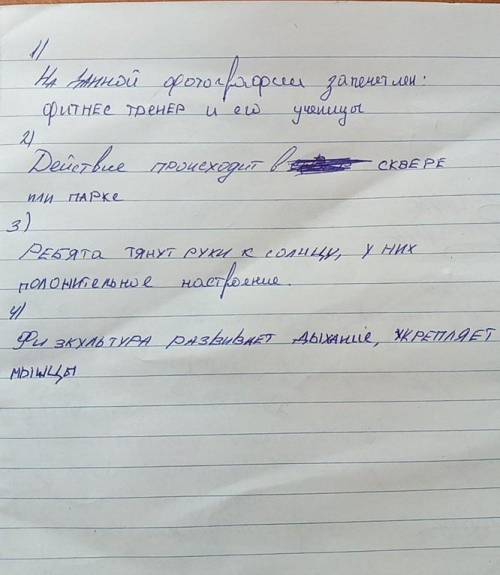 1)
На данной фотографии запечетлен:
фитнес тренер и его ученицы
2)
Действие происходит в сквере
или парке
3)
Ребята тянут руки к солнцу, у них
положительное настроение.
4)
Физкультура развивает дыхание, укрепляет
мышцы